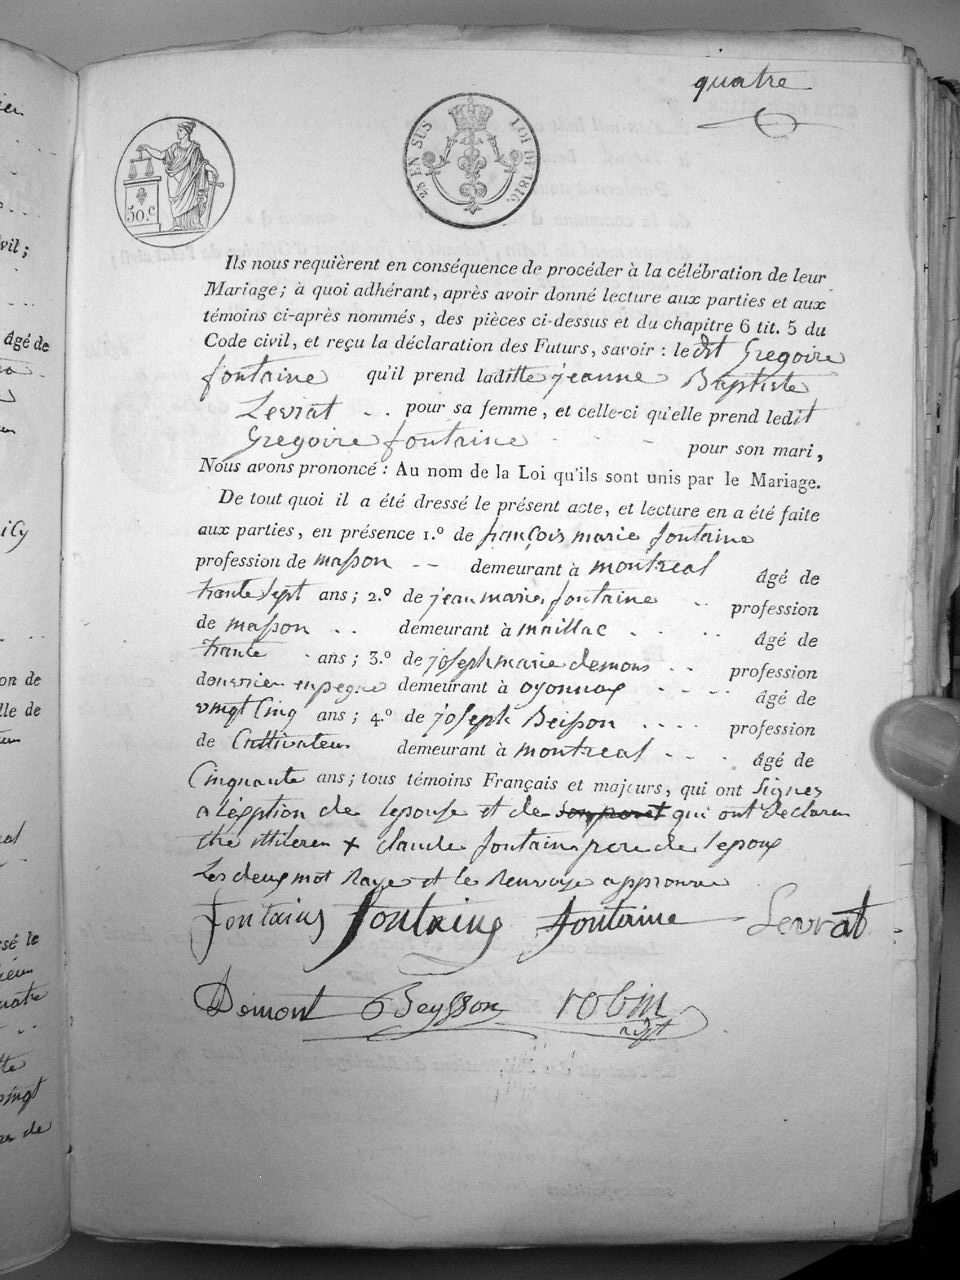 quatre
50.c
25 EN SUS LOI DE 1816.
Ils nous requièrent en conséquence de procéder à la célébration de leur
Mariage; à quoi adhérant, après avoir donné lecture aux parties et aux
témoins ci-après nommés, des pièces ci-dessus et du chapitre 6 tit. 5 du
Code civil, et reçu la déclaration des Futurs, savoir : le dit Gregoire
fontaine qu'il prend laditte jeanne Baptiste
Levrat .. pour sa femme, et celle-ci qu'elle prend ledit
Gregoire fontaine pour son mari,
Nous avons prononcé : Au nom de la Loi qu'ils sont unis par le Mariage.
De tout quoi il a été dressé le présent acte, et lecture en a été faite
aux parties, en présence 1.º de françois marie fontaine
profession de masson -- demeurant à montreal âgé de
trante sept ans; 2.º de jean marie fontaine .. profession
de masson .. demeurant à maillac .... âgé de
trante ans; 3.º de joseph marie demons .. profession
douvrier en pegne demeurant à oyonnax .... âgé de
vingt cinq ans; 4.º de joseph Beisson .... profession
de Cultivateur demeurant à montreal .. âgé de
Cinquante ans; tous témoins Français et majeurs, qui ont signes
a lexption de lepouse et de qui ont declaren
+ claude fontaine pere de lepoux
Les deux mot Raye et le Renvoye approuve
fontaine fontaine fontaine Levrat
Demont Beysson robin